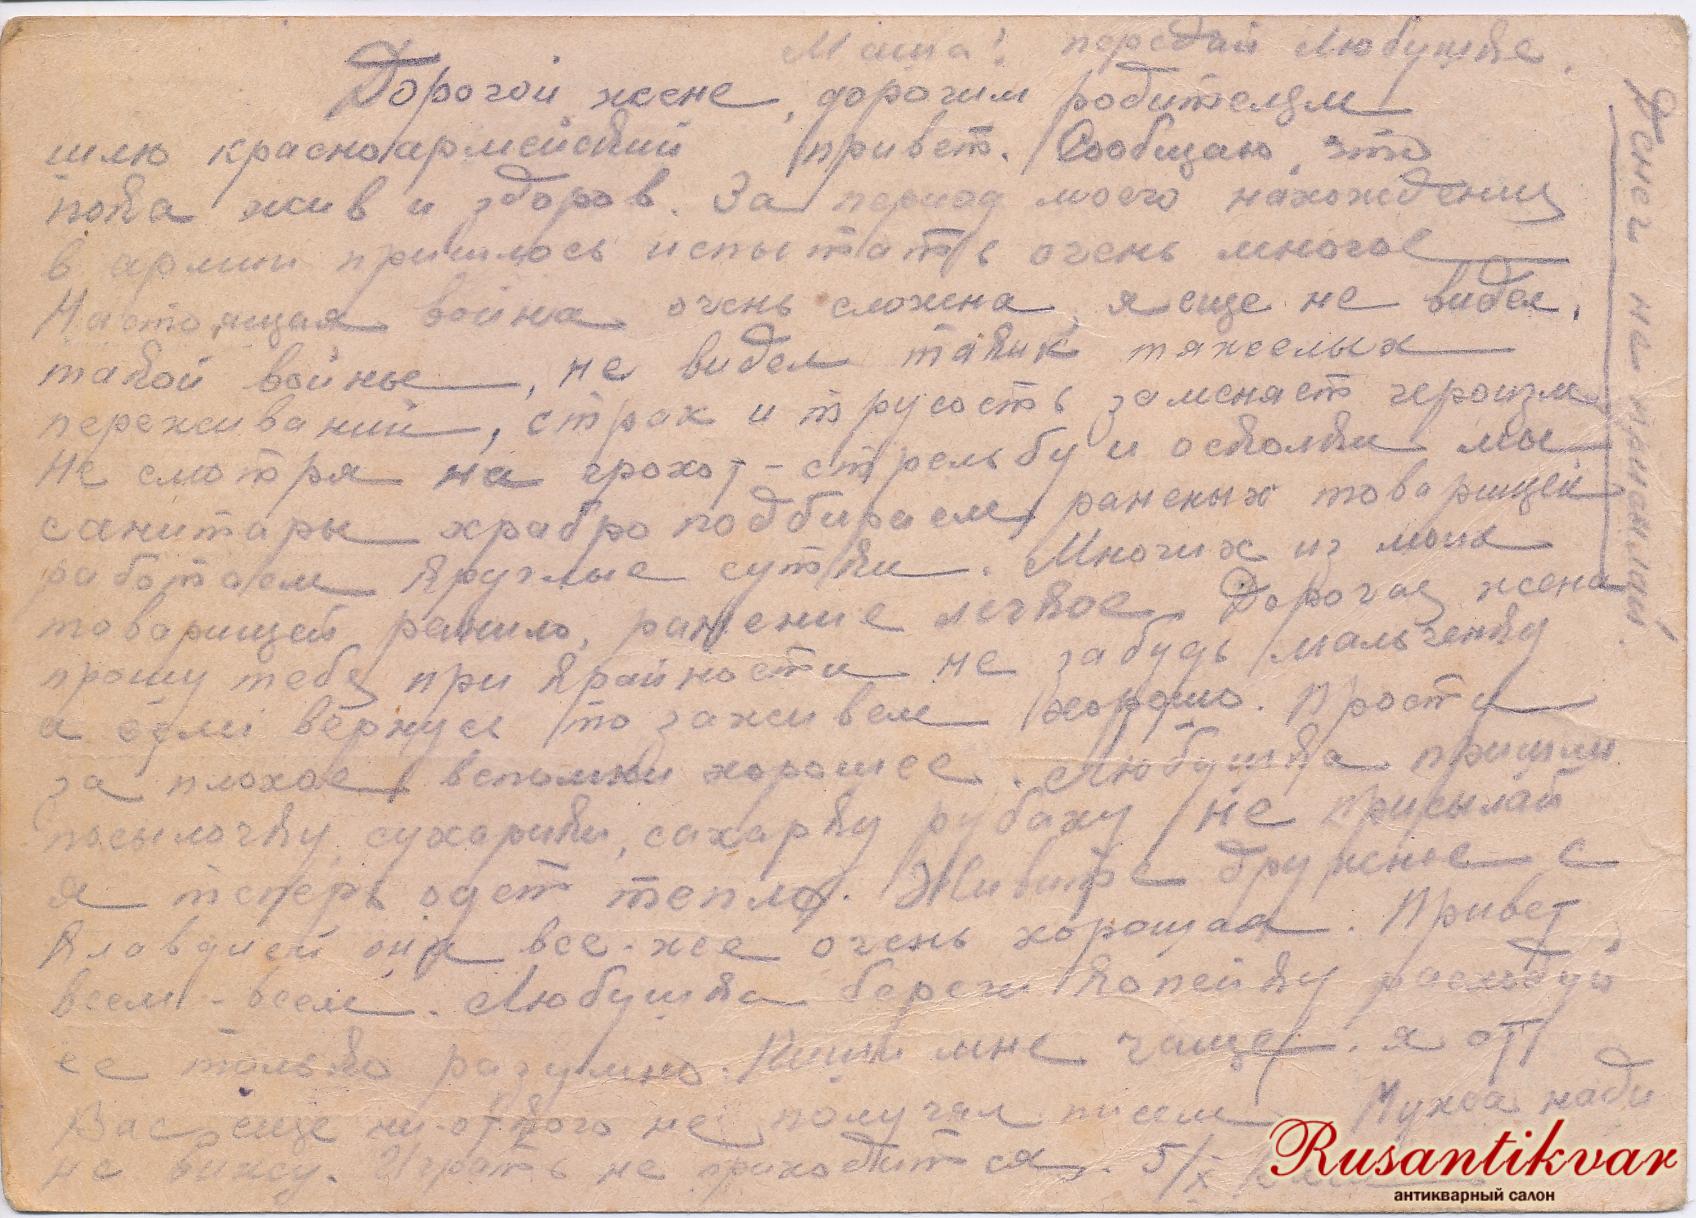 Маша! передай Любушке.
Дорогой жене, дорогим родителям
шлю красноармейский привет. Сообщаю, что
пока жив и здоров. За период моего нахождения
в армии пришлось испытать очень многое
Настоящая война очень сложена, я еще не видел,
такой войны, не видел таких тяжелых
переживаний, страх и трусость заменяет героизм
Не смотря на грохот - стрельбу и осколки мы
санитары храбро подбираем раненых товарищей
работаем круглые сутки. Многих из моих
товарищей ранило, ранение легкое. Дорогая жена
прошу тебя при крайности не забудь мальченку
а если вернусь то заживем хорошо. Прости
за плохое, вспомни хорошее. Любушка пришли
посылочку, сухарики, сахарку рубаху не присылай
я теперь одет тепло. Живите дружные с
Клавдией она все-же очень хорошая. Привет
всем-всем. Любушка береги копейку расходуй
ее только разумно. Пиши мне чаще. я от
Вас еще ни одного не получал писем Мужа нади
не вижу. Играть не приходится. 5/X
Денег не присылай.
Rusantikvar
антикварный салон